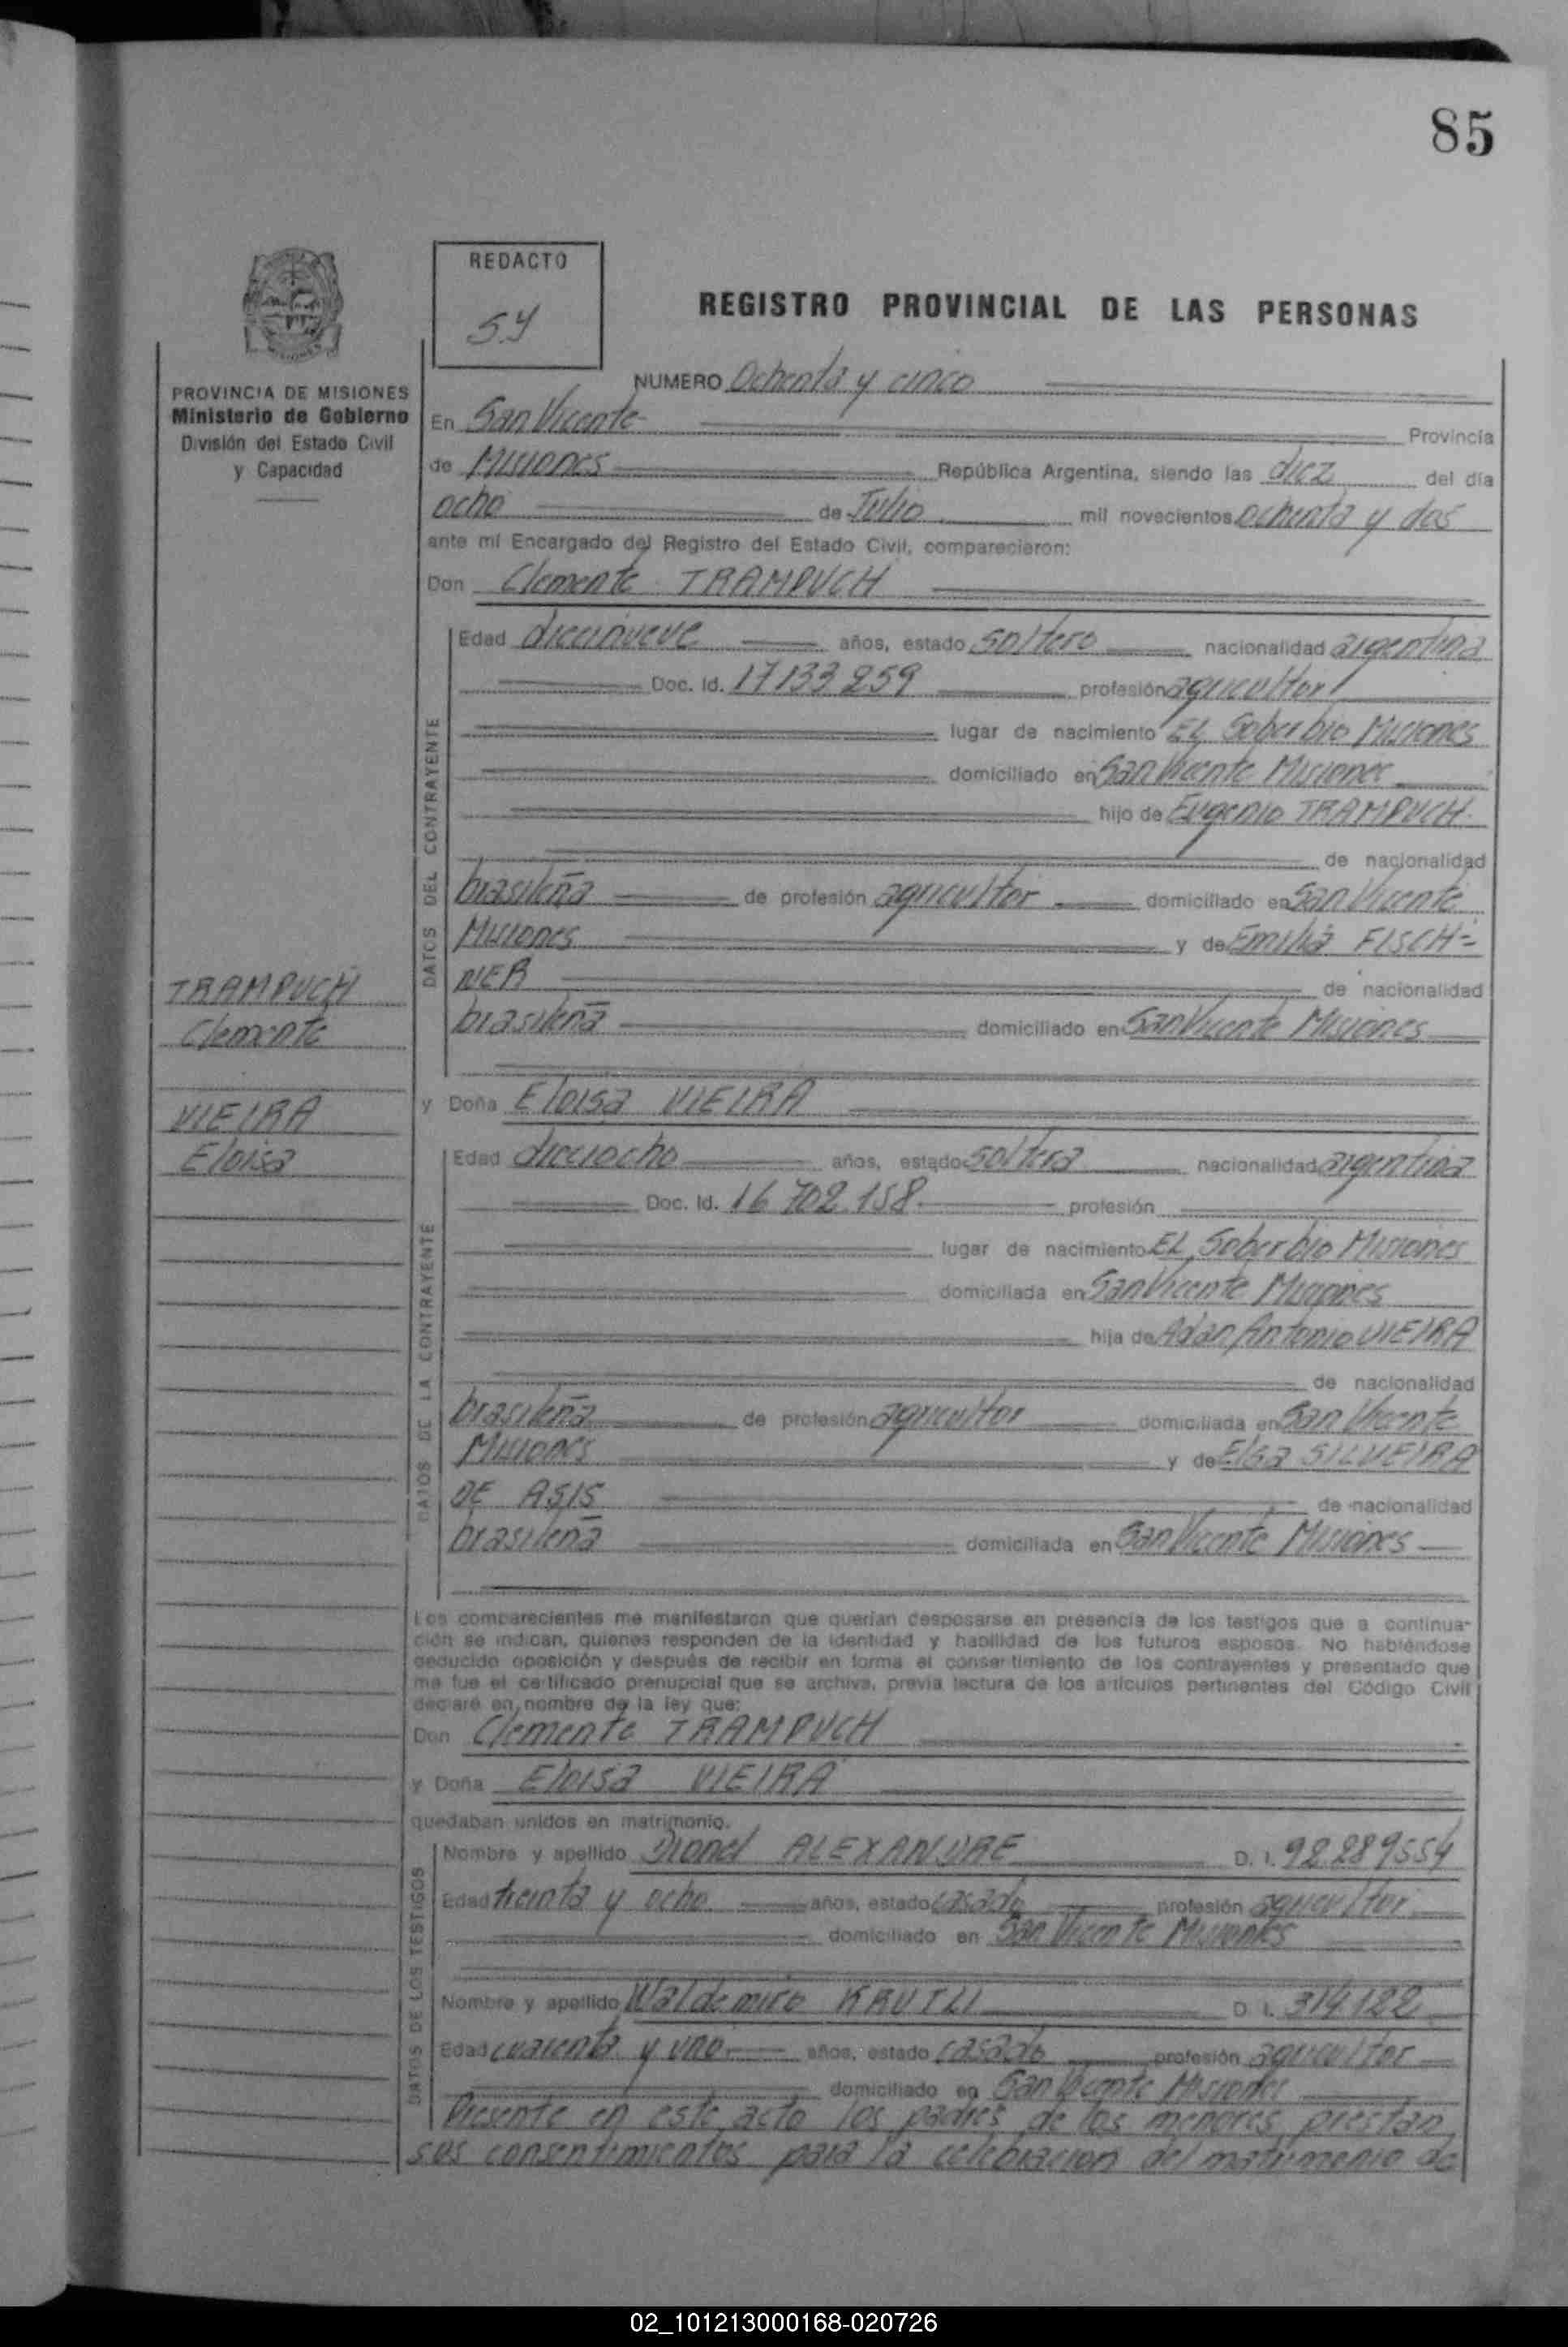 85
REDACTO
REGISTRO PROVINCIAL DE LAS PERSONAS
PROVINCIA DE MISIONES
Ministerio de Gobierno
División del Estado Civil
y Capacidad
NUMERO Ochenta y cinco
En San Vicente Provincia
de Misiones República Argentina, siendo las diez del día
ocho de Julio mil novecientos ochenta y dos
ante mí Encargado del Registro del Estado Civil, comparecieron:
Don Clemente TRAMPUCH
DATOS DEL CONTRAYENTE
Edad diecinueve años, estado soltero nacionalidad argentina
Doc. Id. 17133259 profesión agricultor
lugar de nacimiento EL Soberbio Misiones
domiciliado en San Vicente Misiones
hijo de Eugenio TRAMPUCH
de nacionalidad
brasileña de profesión agricultor domiciliado en San Vicente
Misiones y de Emilia FISCH=
NER de nacionalidad
brasileña domiciliado en San Vicente Misiones
TRAMPUCH
Clemente
VIEIRA
Eloisa
y Doña Eloisa VIEIRA
DATOS DE LA CONTRAYENTE
Edad dieciocho años, estado soltera nacionalidad argentina
Doc. Id. 16.702.158 profesión
lugar de nacimiento EL Soberbio Misiones
domiciliada en San Vicente Misiones
hija de Adan Antonio VIEIRA
de nacionalidad
brasileña de profesión agricultor domiciliada en San Vicente
Misiones y de Elsa SILVEIRA
DE ASIS de nacionalidad
brasileña domiciliada en San Vicente Misiones
Los comparecientes me manifestaron que querían desposarse en presencia de los testigos que a continua-
ción se indican, quienes responden de la identidad y habilidad de los futuros esposos. No habiéndose
deducido oposición y después de recibir en forma el consentimiento de los contrayentes y presentado que
me fue el certificado prenupcial que se archiva, previa lectura de los artículos pertinentes del Código Civil
declaré en nombre de la ley que:
Don Clemente TRAMPUCH
y Doña Eloisa VIEIRA
quedaban unidos en matrimonio.
DATOS DE LOS TESTIGOS
Nombre y apellido ALEXANDRE D. I. 92289554
Edad treinta y ocho años, estado casado profesión agricultor
domiciliado en San Vicente Misiones
Nombre y apellido Waldemiro D. I. 314.122
Edad cuarenta y uno años, estado casado profesión agricultor
domiciliado en San Vicente Misiones
Presente en este acto los padres de los menores prestan
sus consentimientos para la celebracion del matrimonio de
02_101213000168-020726